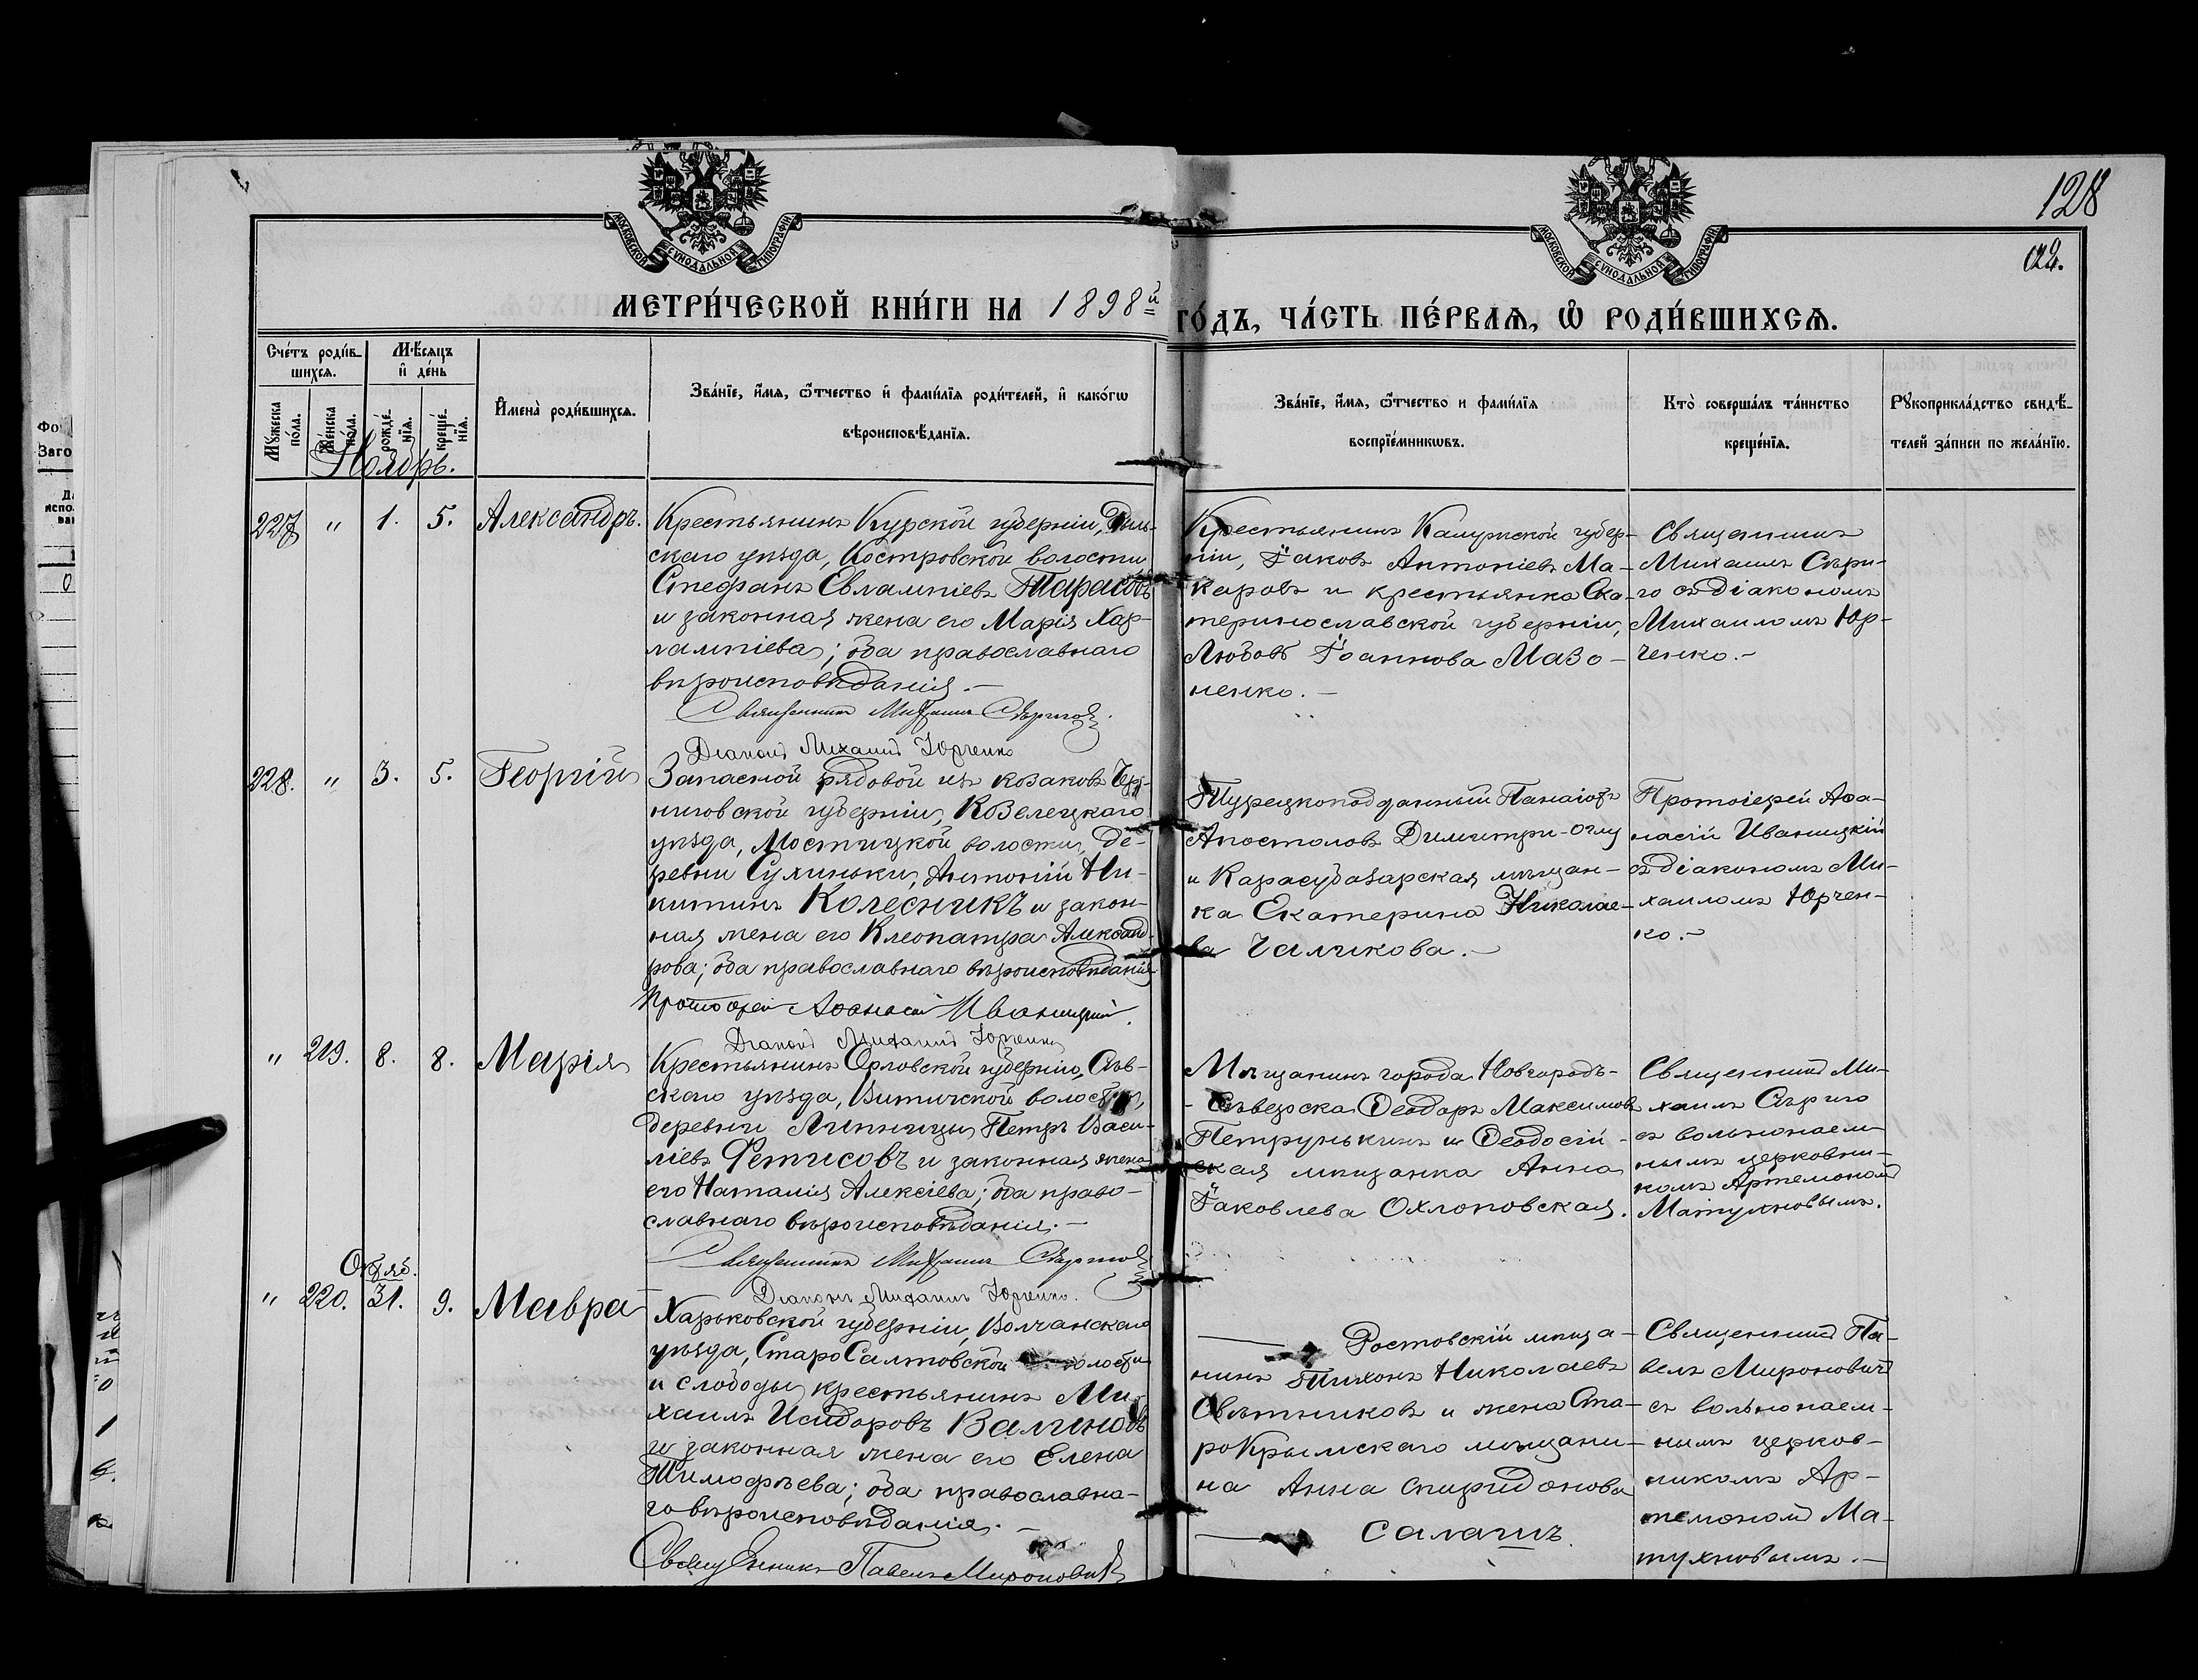 128
МОСКОВСКОЙ СѴНОДАЛЬНОЙ ТИПОГРАФІИ
МОСКОВСКОЙ СѴНОДАЛЬНОЙ ТИПОГРАФІИ
МЕТРИ́ЧЕСКОЙ КНИ́ГИ НА 1898й ГО́ДЪ, ЧА́СТЬ ПЕ́РВАѦ, Ѡ҆ РОДИ́ВШИХСѦ.
Сче́тъ роди́в-
шихсѧ.
Мꙋ́жеска по́ла.
Же́нска по́ла.
Мѣ́сѧцъ
и҆ де́нь
рожде́нїѧ.
креще́нїѧ.
И҆мена̀ роди́вшихсѧ.
Зва́нїе, и҆́мѧ, ѻ҆́тчество и҆ фами́лїѧ роди́телей, и҆ како́гѡ
вѣроисповѣ́данїѧ.
Зва́нїе, и҆́мѧ, ѻ҆́тчество и фами́лїѧ
воспрїе́мникѡвъ.
Кто̀ соверша́лъ та́инство
креще́нїѧ.
Рꙋкоприкла́дство свидѣ́-
телей за́писи по жела́нїю.
Ноябрь.
227 " 1. 5. Александръ.
Крестьянинъ Курской губерніи,
скаго уѣзда, Костровской волости
Стефанъ Евлампіевъ Тарасовъ
и законная жена его Марія Хар-
лампіева; оба православнаго
вѣроисповѣданія.—
Священникъ Михаилъ Сѣригоз.
Діаконъ Михаилъ Юрченко
Крестьянинъ Калужской губер-
ніи, Іаковъ Антоніевъ Ма-
каровъ и крестьянка Ека-
теринославской губерніи,
Любовь Іоаннова Мазо-
ненко.—
Священникъ
Михаилъ Сѣри-
го съ діакономъ
Михаиломъ Юр-
ченко.—
228. " 3. 5. Георгій
Запасной рядовой изъ козаковъ Чер-
ниговской губерніи, Козелецкаго
уѣзда, Мостицкой волости, де-
ревни Сухиньки, Антоній Ни-
китинъ Колесникъ и закон-
ная жена его Клеопатра Александ-
рова; оба православнаго вѣроисповѣданія
Протоіерей Аѳанасій Иваницкій.
Діаконъ Михаилъ Юрченко
Турецкоподданный Панаіотъ
Апостоловъ Димитри-оглу
и Карасубазарская мѣщан-
ка Екатерина Николае-
ва Чаликова.—
Протоіерей Аѳа-
насій Иваницкій
съ діакономъ Ми-
хаиломъ Юрчен-
ко.—
" 219. 8. 8. Марія
Крестьянинъ Орловской губерніи, Сѣв-
скаго уѣзда, Витичской волости,
деревни Липницы, Петръ Васи-
ліевъ Фетисовъ и законная жена
его Наталія Алексіева; оба право-
славнаго вѣроисповѣданія.—
Священникъ Михаилъ
Діаконъ Михаилъ Юрченко.
Мѣщанинъ города Новгородъ-
-Сѣверска Ѳеодоръ Максимовъ
Петрунькинъ и Ѳеодосій-
ская мѣщанка Анна
Іаковлева Охлоповская.
Священникъ Ми-
хаилъ Сѣриго
съ вольнонаем-
нымъ церковни-
комъ Артемономъ
Матухновымъ.
Октяб.
" 220. 31. 9. Мавра
Харьковской губерніи, Волчанскаго
уѣзда, СтароСалтовской волости
и слободы, крестьянинъ Ми-
хаилъ Исидоровъ Валиновъ
и законная жена его Елена
Тимофѣева; оба православна-
го вѣроисповѣданія.—
Священникъ Павелъ Мироновичъ
Ростовскій мѣща-
нинъ Тихонъ Николаевъ
Свѣтниковъ и жена Ста-
роКрымскаго мѣщани-
на Анна Спиридонова
Салашъ.
Священникъ Па-
велъ Мироновичъ
съ вольнонаем-
нымъ церков-
никомъ Ар-
темономъ Ма-
тухновымъ.—